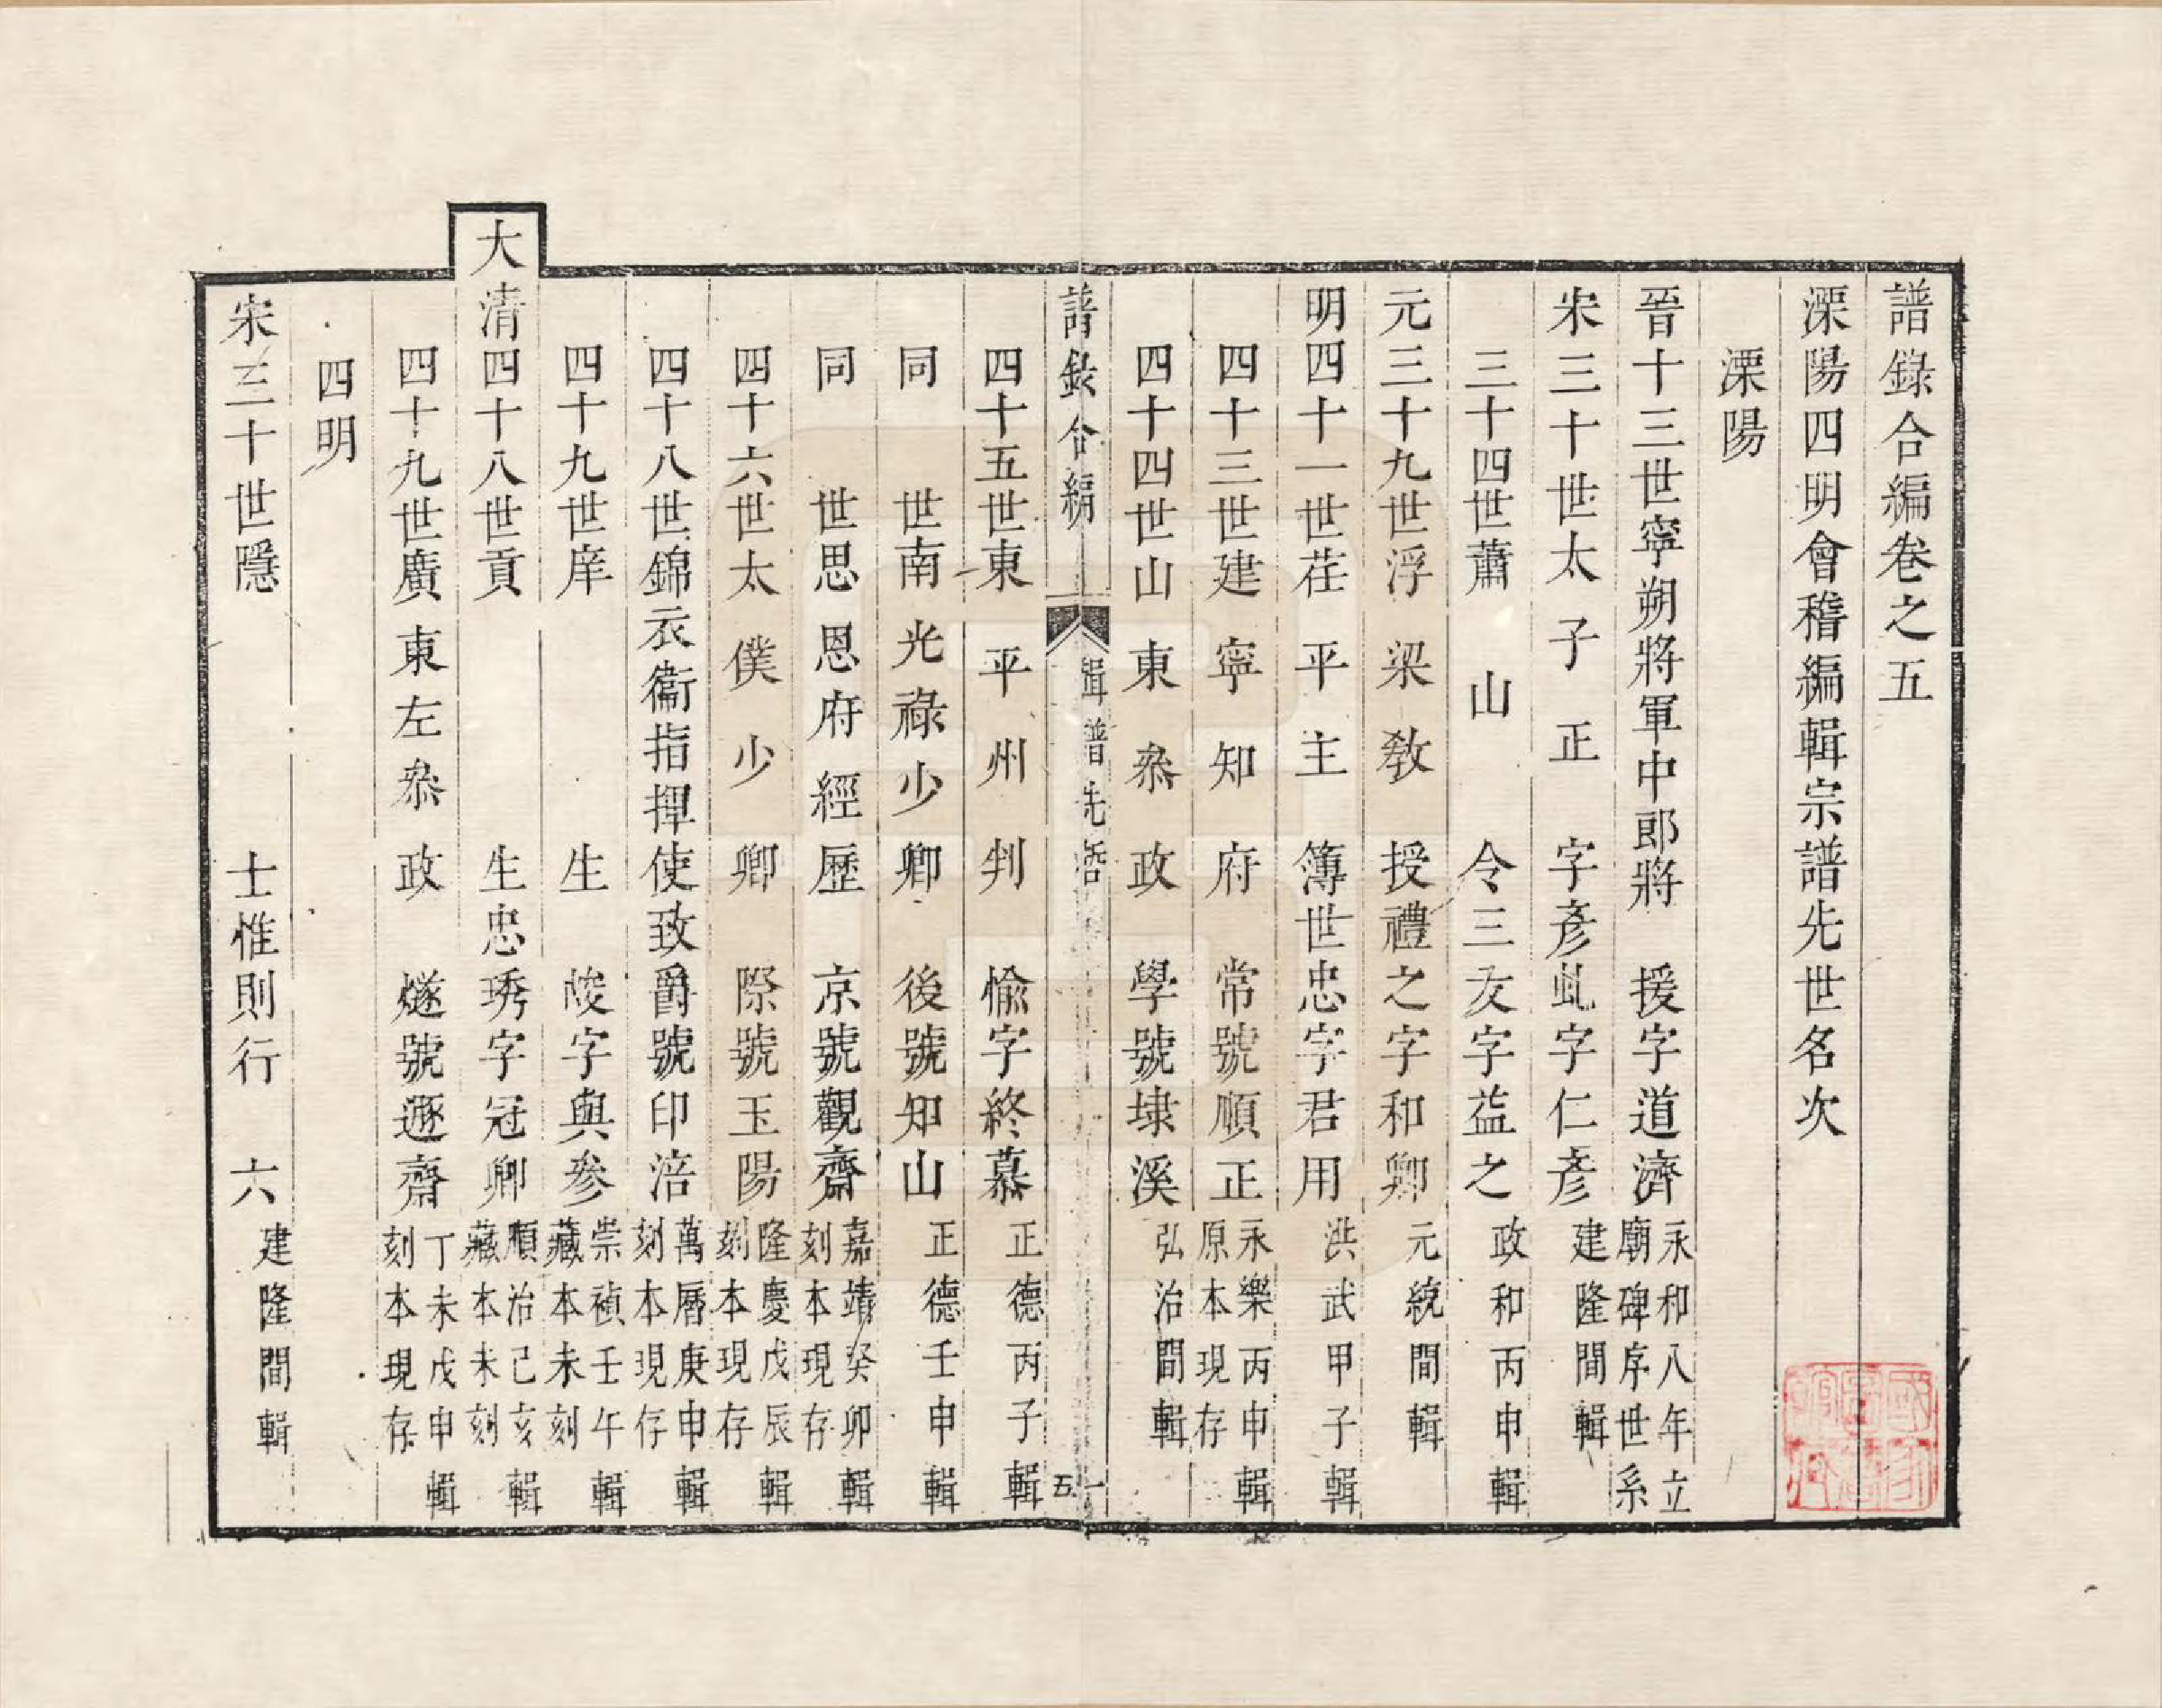 譜錄合編卷之五
溧陽四明會稽編輯宗譜先世名次
溧陽
晉十三世寧朔將軍中郎將 援字道濟 永和八年立
廟碑序世系
宋三十世太子正 字彥虬字仁彥 建隆間輯
三十四世蕭山 令三友字益之 政和丙申輯
元三十九世浮梁教 授禮之字和卿 元統間輯
明四十一世茌平主 簿世忠字君用 洪武甲子輯
四十三世建寧知 府 常號順正 永樂丙申輯
原本現存
四十四世山東叅 政 學號埭溪 弘治間輯
譜錄合編 輯譜先 五 一
四十五世東平州判 愉字終慕 正德丙子輯
同 世南光祿少卿 後號知山 正德壬申輯
同 世思恩府經歷 京號觀齋 嘉靖癸卯輯
刻本現存
四十六世太僕少卿 際號玉陽 隆慶戊辰輯
刻本現存
四十八世錦衣衞指揮使致爵號印涪 萬曆庚申輯
刻本現存
四十九世庠 生 峻字與參 崇禎壬午輯
藏本未刻
大清四十八世貢 生忠琇字冠卿 順治己亥輯
藏本未刻
四十九世廣東左叅政 燧號遯齋 丁未戊申輯
刻本現存
四明
宋三十世隱 士惟則行 六 建隆間輯